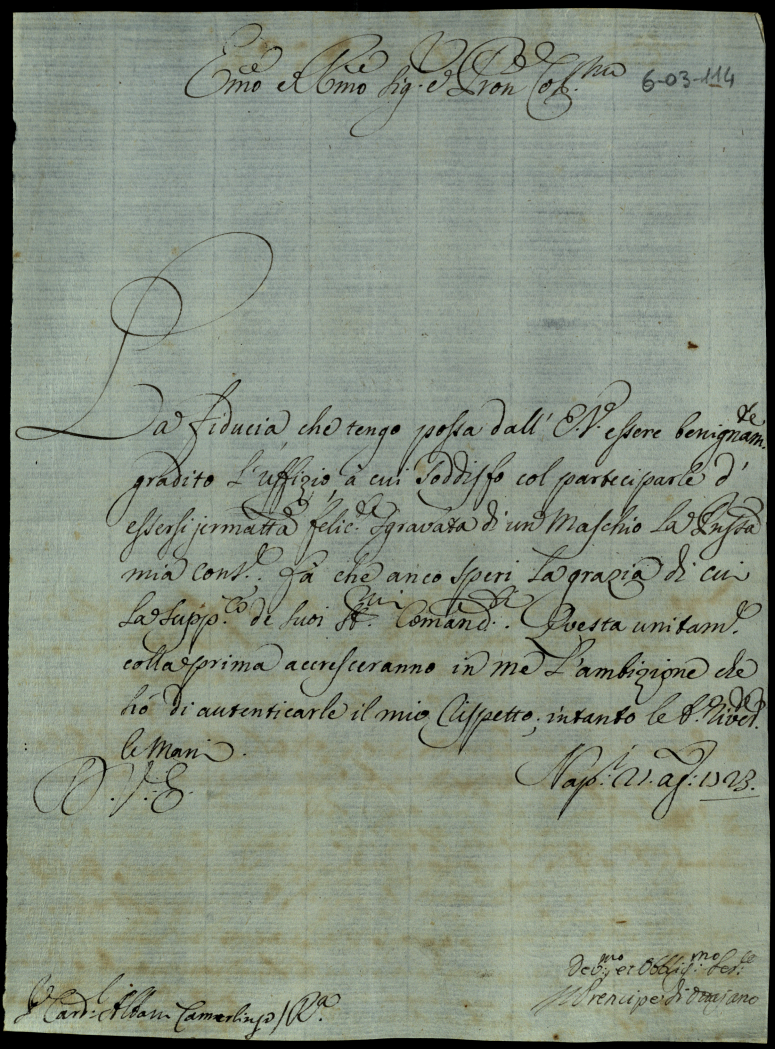 Em̃o e R̃mo Sig.re Pron Col.mo
6-03-114
La fiducia che tengo possa dall' E.V. essere benignam.te
gradito l'uffizio, à cui soddisfo col parteciparle d'
essersi jermattina felic.te sgravata di un Maschio la
mia Cons.te. fà che anco speri la grazia di cui
la supp.co de suoi st.mi Comandi. Questa unitam.te
colla prima accresceranno in me l'ambizione che
hò di autenticarle il mio rispetto, intanto le b. river.te
le Mani.
D. V. E.
Nap.li 21. ag.to 1723.
Dev.mo et Obblig.mo Ser.re
Il Prencipe di
S.r Card.l Albani Camerlingo / R.a